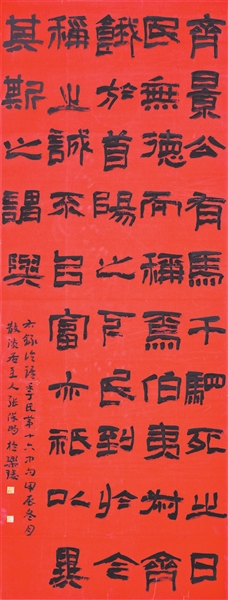 齊景公有馬千駟死之日
民無德而稱焉伯夷叔齊
餓於首陽之下民到於今
稱之誠不㠯富亦祇以異
其斯之謂與
右錄論語季氏第十六中句甲辰冬月
主人張